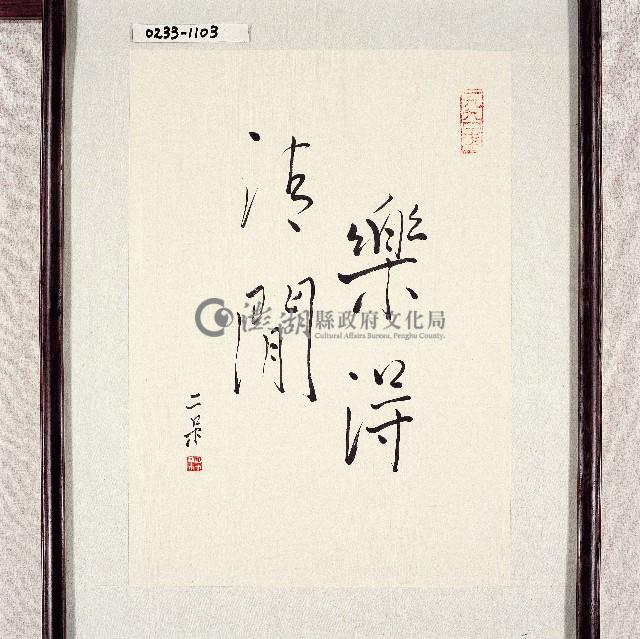 0233-1103
樂得
清閒
二呆
澎湖縣政府文化局
Cultural Affairs Bureau, Penghu County.